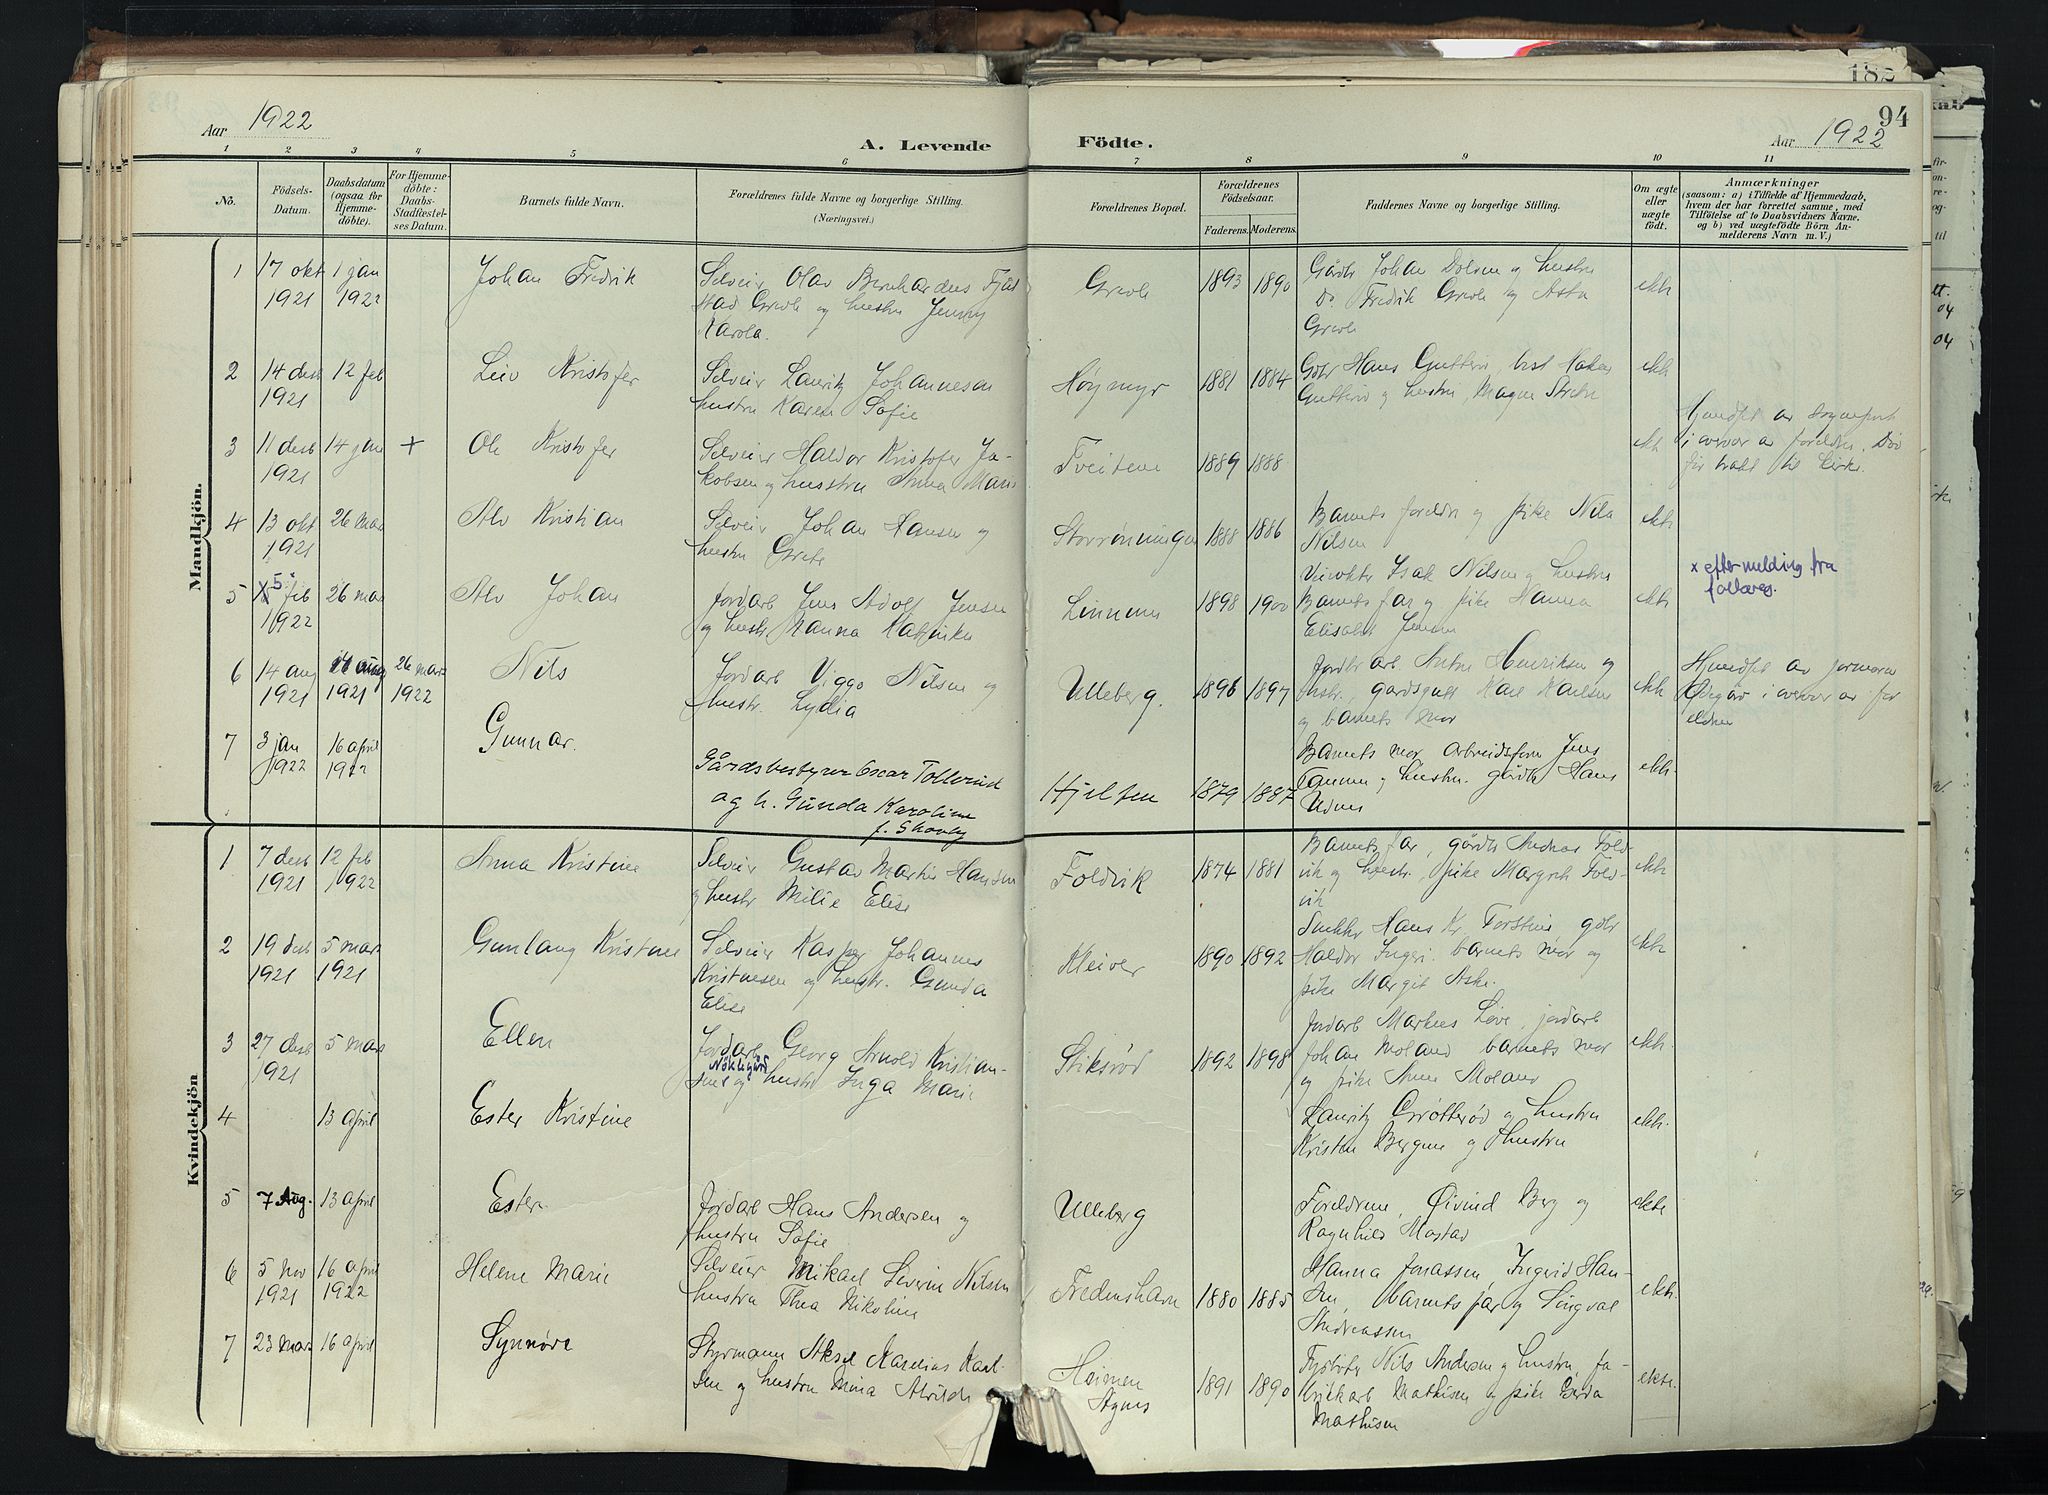 Aar 1922
A. Levende
Födte.
182
94
Aar 1922
1 2 3 4 5 6 7 8 9 10 11
No.
Födsels-
Datum.
Daabsdatum
(ogsaa for
Hjemme-
döbte).
For Hjemme-
döbte:
Daabs-
Stadfæstel-
ses Datum.
Barnets fulde Navn.
Forældrenes fulde Navne og borgerlige Stilling.
(Næringsvei.)
Forældrenes Bopæl.
Forældrenes
Födselsaar.
Faderens. Moderens.
Faddernes Navne og borgerlige Stilling.
Om ægte
eller
uægte
födt.
Anmærkninger
(saasom: a) i Tilfælde af Hjemmedaab,
hvem der har forrettet samme, med
Tilföielse af to Daabsvidners Navne,
og b) ved uægtefödte Börn An-
melderens Navn m. V.)
Mandkjön.
1 17 okt 1921 1 jan 1922 Johan Fredrik
Selveier Olav Bernhardus Fjæl
stad Grevle og hustru Jenny
Karola.
Grevle 1893 1890
Gårdbr Johan Dolven og hustru
Do. Fredrik Grevle og Asta
Grevle
ekte
2 14 desb 1921 12 feb Leiv Kristofer
Selveier Lauritz Johannesen
hustru Karen Sofie
Høymyr 1881 1884
Gdbr Hans
og hustru, Magne
ekte
3 11 desb 1921 14 jan + Ole Kristofer
Selveier Haldor Kristofer Ja-
kobsen og hustru Anna Marie
Tveitene 1889 1888
ekte
Hjemdøpt av sogneprest
i overvær av foreldre. Død
før bragt til kirke.
4 13 okt 1921 26 mars Alv Kristian
Selveier Johan Hansen og
hustru Grete
Storrønningen 1888 1886
Barnets foreldre og pike Nila
Nilsen
ekte
5 x 5 feb 1922 26 mars Alv Johan
Jordarb Jens Adolf Jensen
og hustr. Hanna Katrinka
Linnum 1898 1900
Isak Nilsen og hustru
Barnets far og pike Hanna
Elisabet Jensen
ekte
x efter melding fra
folkereg.
6 14 aug 1921 14 aug 1921 26 mars 1922 Nils
Jordarb Viggo Nilsen og
hustr. Lydia
Ulleberg. 1896 1897
Jordbr arb. Anton Henriksen og
hustr., gårdsgutt Karl Karlsen
og barnets mor
ekte
Hjemdøpt av jormoren
Ødegård i overvær av for
eldrene
7 3 jan 1922 16 april 1922 Gunnar.
Gårdsbestyrer Oscar Tollerud
og h. Gunda Karoline
f. Skovly
Hjelten 1879 1887
Barnets mor, arbeidsform Jens
og hustru. gårdbr Hans
Udnes
ekte.
Kvindekjön
1 7 desb 1921 12 feb 1922 Anna Kristine
Selveier Gustav Martin Hansen
og hustr Milie Elise
Foldvik 1874 1881
Barnets far, gårdbr Andreas Fold
vik og hustr, pike Margret Fold-
vik
ekte
2 19 desb 1921 5 mars 1921 Gunlaug Kristine
Selveier Kasper Johannes
Kristensen og hustr. Gunda
Elise
Kleiver 1890 1892
Snekker Hans Kr. Torstein, gdbr
Haldor barnets mor og
pike Margit Aske.
ekte
3 27 desb 1921 5 mars Ellen
Jordarb Georg Arnold Kristian-
Nøkligård
sen og hustru Inga Marie
Stiksrød 1892 1898
Jordarb Markus Løve, jordarb
Johan Moland barnets mor
og pike Anne Moland
ekte.
4 13 april Ester Kristine
Lauritz Grøtterød og hustru
Kristen Bergene og hustru
ekte.
5 7 Aug. 13 april Ester
Jordarb Hans Andersen og
hustru Sofie
Ulleberg
Foreldrene, Øivind Berg og
Ragnhild Mostad
ekte
6 5 nov 1921 16 april 1922 Helene Marie
Selveier Mikael Severin Nilsen
hustru Thea Nikoline
Fredenshavn 1880 1885
Hanna Jonassen, Ingerid Han-
sen, barnets far og Singval
Andreassen
ekte.
7 23 mars 16 april Synnøve
Styrmann Aksel Karelius Karl-
sen og hustru Mina Alvilde
Heimen
Agnes
1891 1890
Nils Andersen og hustru, fa-
brikkarb Mathisen og pike Gerda
Mathisen
ekte.